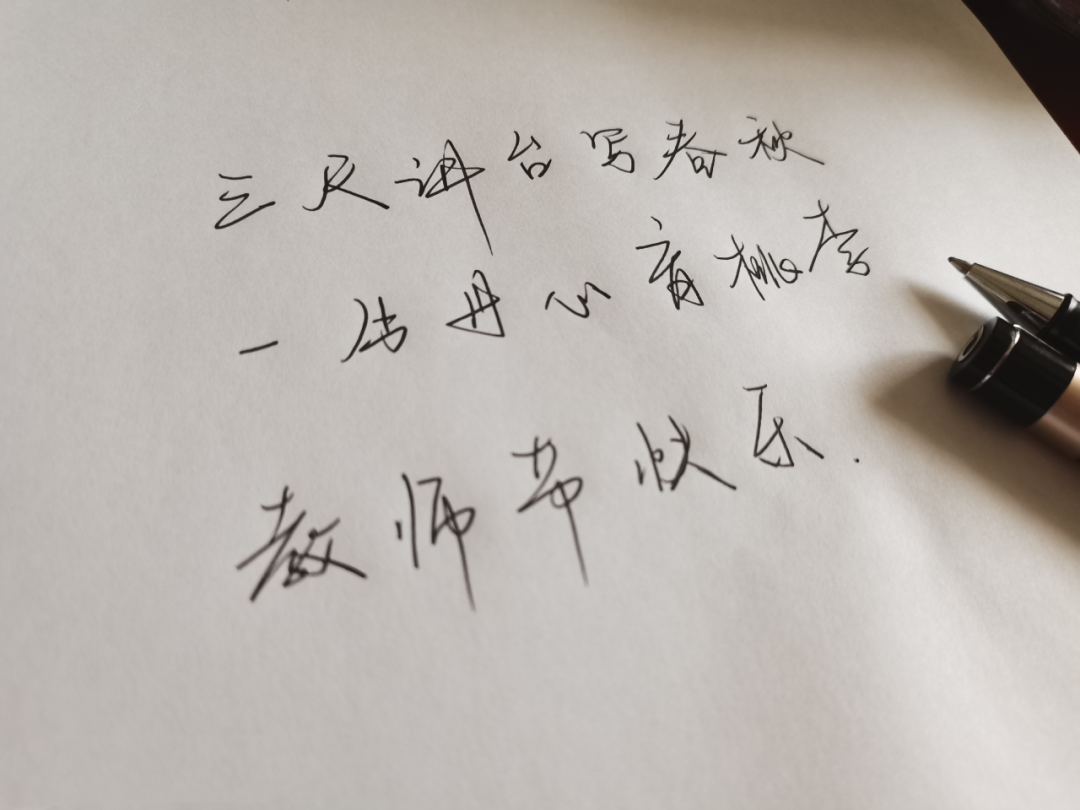 三尺讲台写春秋
一片丹心育桃李
教师节快乐.